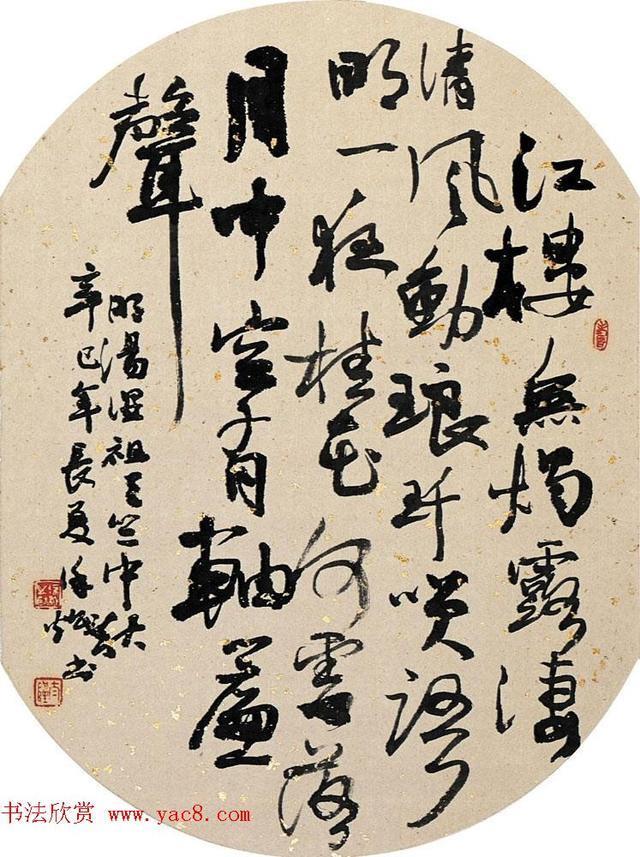 江樓無燭露淒
清風動琅玕咲語
明一夜桂花何處落
月中空有軸簾
聲
明湯顯祖天竺中秋
辛巳年長夏 书
书法欣赏 www.yac8.com